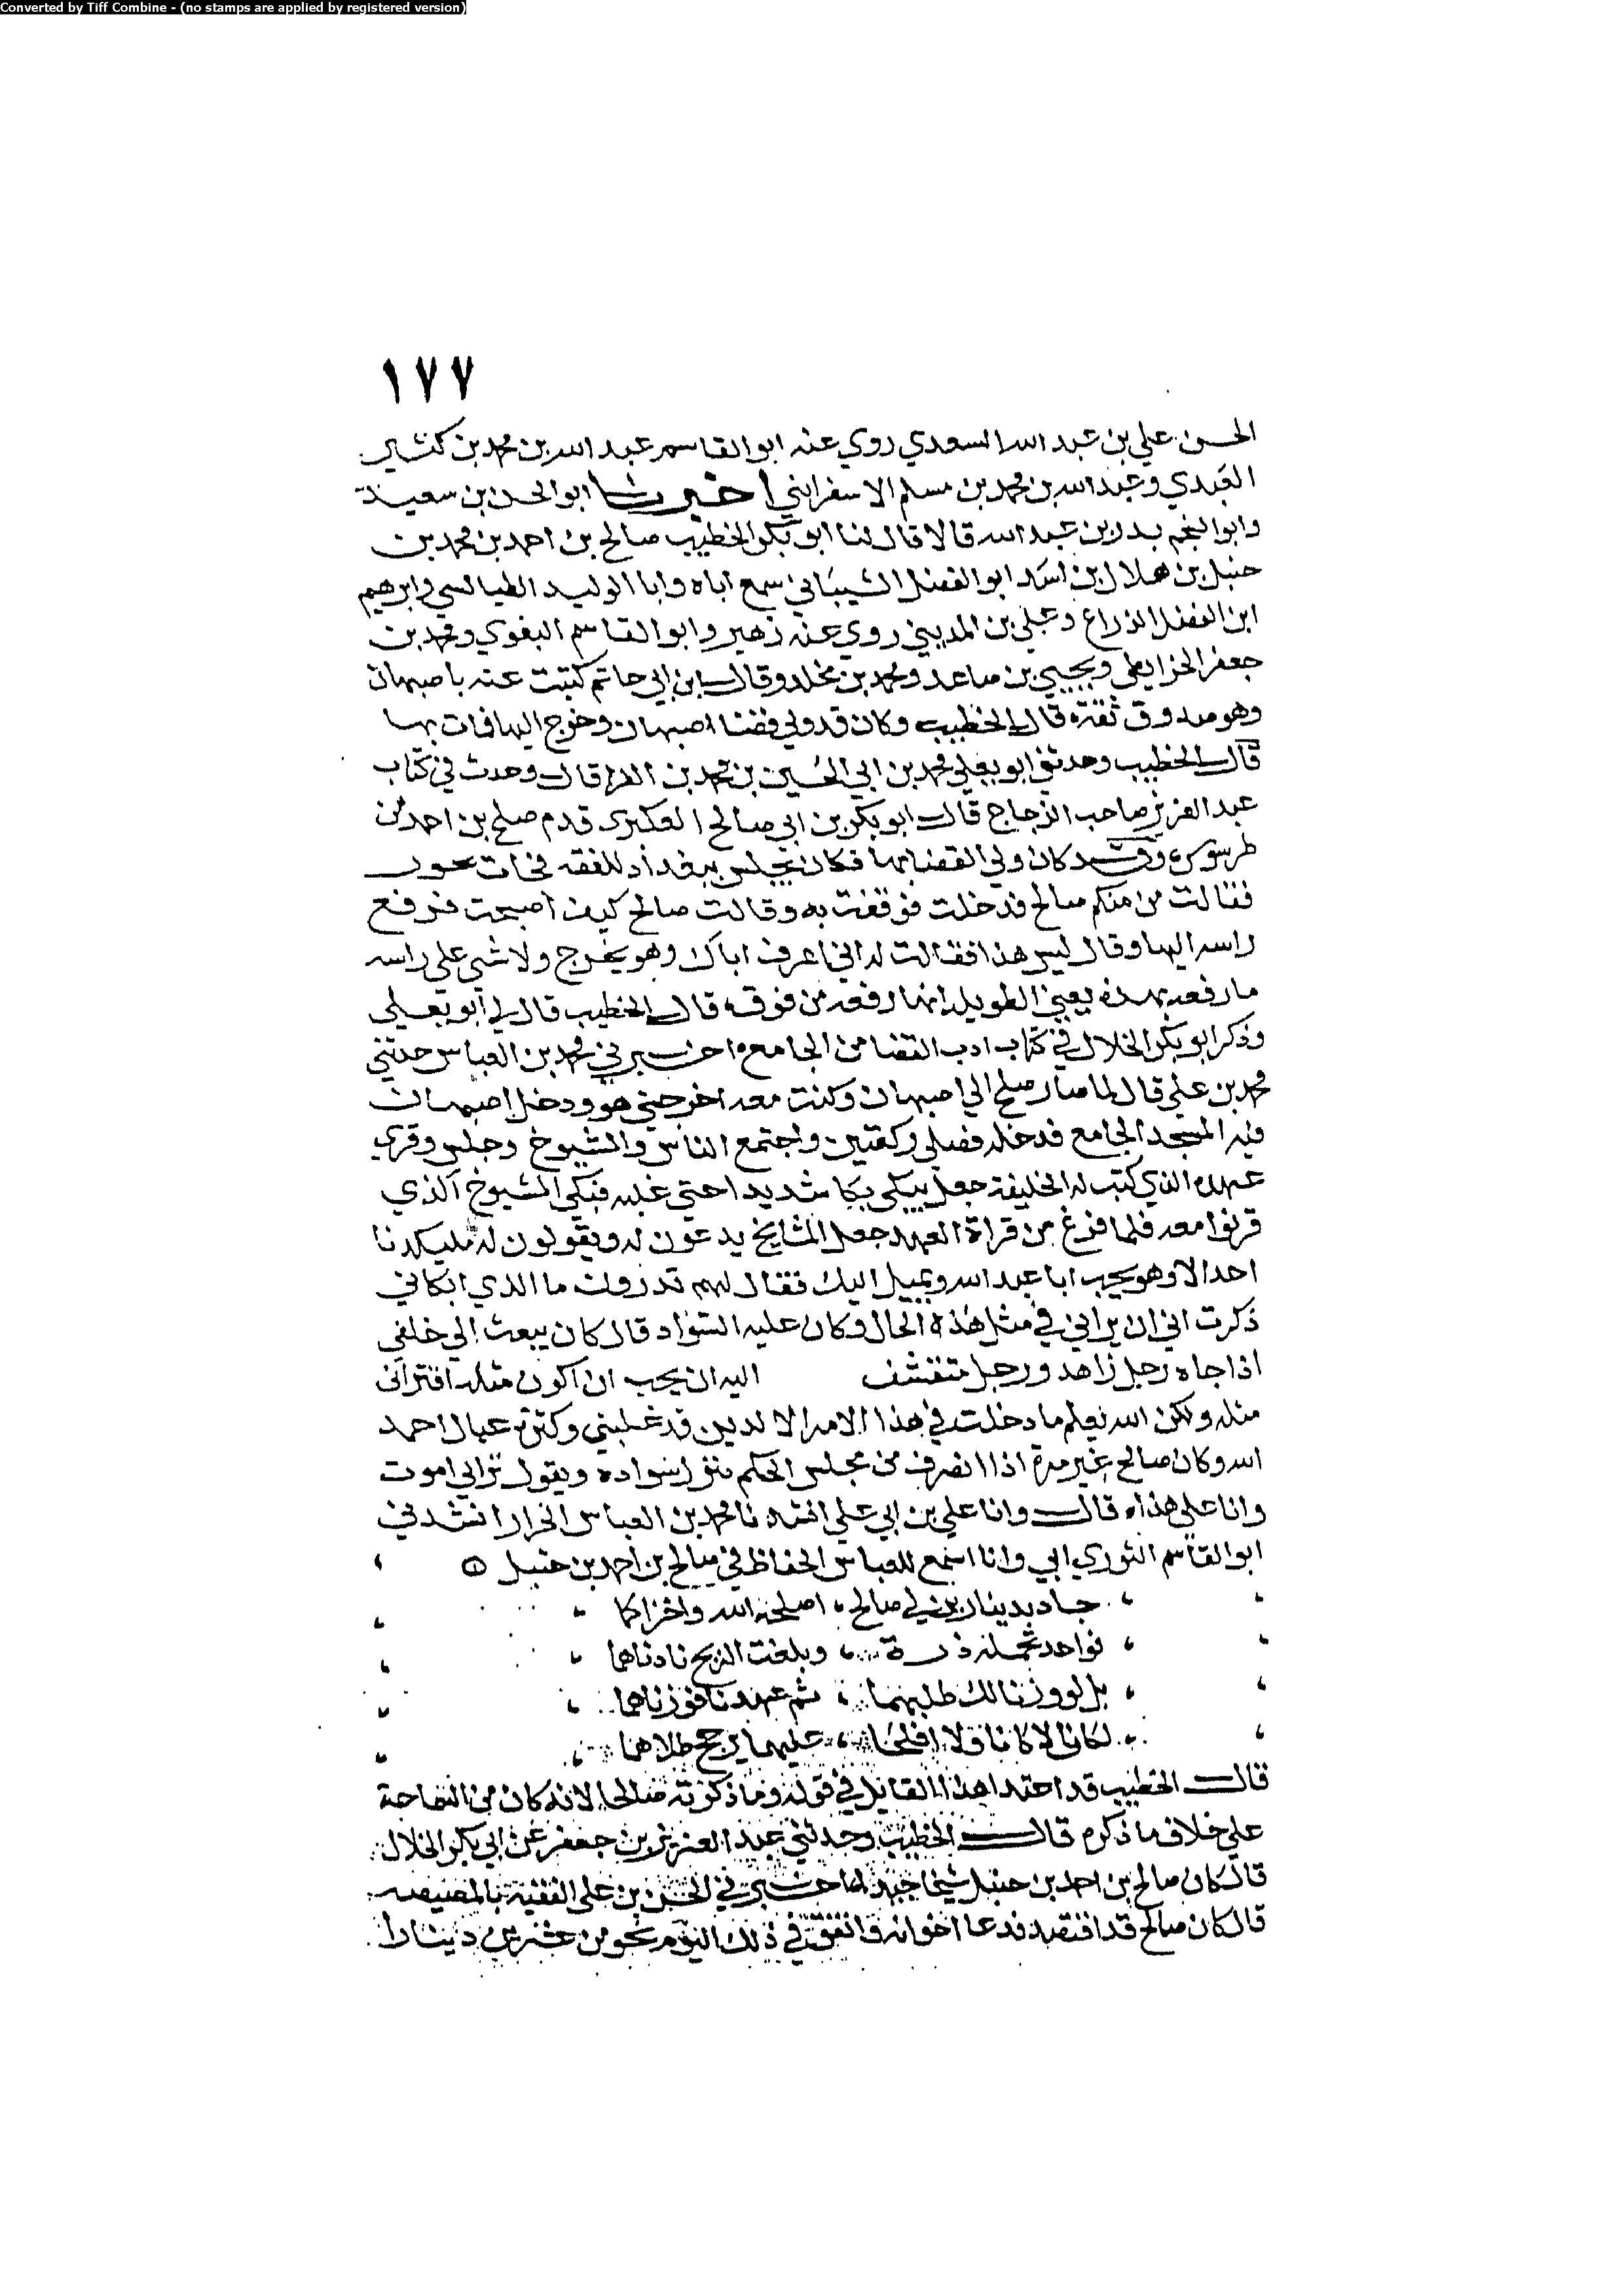 Converted by Tiff Combine - (no stamps are applied by registered version)
١٧٧
الحسن علي بن عبد الله السعدي روي عنه ابو القاسم عبد الله بن محمد بن كثير
العبدي وعبد الله بن محمد بن مسلم الاسفرايني اخبرنا ابو الحسن بن سعيد
وابو النجم بدر بن عبد الله قالا قال لنا ابو بكر الخطيب صالح بن احمد بن محمد بن
حنبل بن هلال بن اسد ابو الفضل الشيباني سمع اباه وابا الوليد الطيالسي وابرهيم
ابن الفضل الذراع وعلي بن المديني روي عنه زهير وابو القاسم البغوي ومحمد بن
جعفر الخرايطي ويحيي بن صاعد ومحمد بن مخلد وقال ابن ابي حاتم كتبت عنه باصبهان
وهو صدوق ثقة قال الخطيب وكان قد ولي قضا اصبهان وخرج اليها فات بها
قال الخطيب وحدثني ابو يعلي محمد بن ابي الحسين بن محمد بن الفرا قال وحدث في كتاب
عبد العزيز صاحب الزجاج قال ابو بكر بن ابي صالح العكبرى قدم صلح بن احمد من
طرسوس وقد كان ولي القضا بها فكان يجلس ببغداد للفقه فجات عجوز
فقالت من منكم صالح فدخلت فوقفت به وقالت صالح كيف اصبحت فرفع
راسه اليها وقال ليس هذا فقالت له اني اعرف اباك وهو يخرج ولا شي علي راسه
ما رفعه بهذه يعني الطويله انما رفعه من فوقه قال الخطيب قال لي ابو يعلي
وذكر ابو بكر الخلال في كتاب ادب القضا من الجامع اخبرني محمد بن العباس حدثني
محمد بن علي قال لما صار صلح الي اصبهان وكنت معه اخرجني هو ودخل اصبهان
فيه المسجد الجامع فدخله فصلي ركعتين واجتمع الناس والشيوخ وجلس وقري
عهده الذي كتب له الخليفة جعل يبكي بكا شديدا حتي غلبه فبكي الشيوخ الذي
قربوا معه فلما فرغ من قراة العهد جعل المشايخ يدعون له ويقولون له ما ببلدنا
احد الا وهو يحب ابا عبد الله ويميل اليك فقال لهم تدرون ما الذي ابكاني
ذكرت اني ان يراني في مثل هذه الحال وكان عليه السواد قال كان يبعث الي خلفي
اذا جاه رجل زاهد ورجل متقشف اليه ان يحب ان اكون مثله افتراني
مثله ولكن الله يعلم ما دخلت في هذا الامر الا لدين قد غلبني وكثرة عيال احمد
الله وكان صالح غير مرة اذا انصرف من مجلس الحكم ينزل سواده ويقول تراني اموت
وانا علي هذا قال وانا علي بن ابي علي انبه نا محمد بن العباس الخزاز انشدني
ابو القاسم التوزي ابي وانا اسمع للعباس الحفاظ في صالح بن احمد بن حنبل
جاد بدينارين لي صالح اصلحه الله واخزاكما
فواحد تحمله ذرة وبلغت الريح نادناهما
بل لو وزنا لك طلبهما ثم عهدنا فوزناهما
لكانا لا كانا ولا افلحا عليهما يرجح ظلاهما
قال الخطيب قد اعتدا هذا القايل في قوله وما ذكر به صالحا لانه كان من السماحة
علي خلاف ما ذكره قال الخطيب وحدثني عبد العزيز بن جعفر عن ابي بكر الخلال
قال كان صالح بن احمد بن حنبل سخيا جدا اخبرني الحسن بن علي الفقيه بالمصيصه
قال كان صالح قد افتصد فدعا اخوانه وانفق في ذلك اليوم نحو من عشرين دينارا